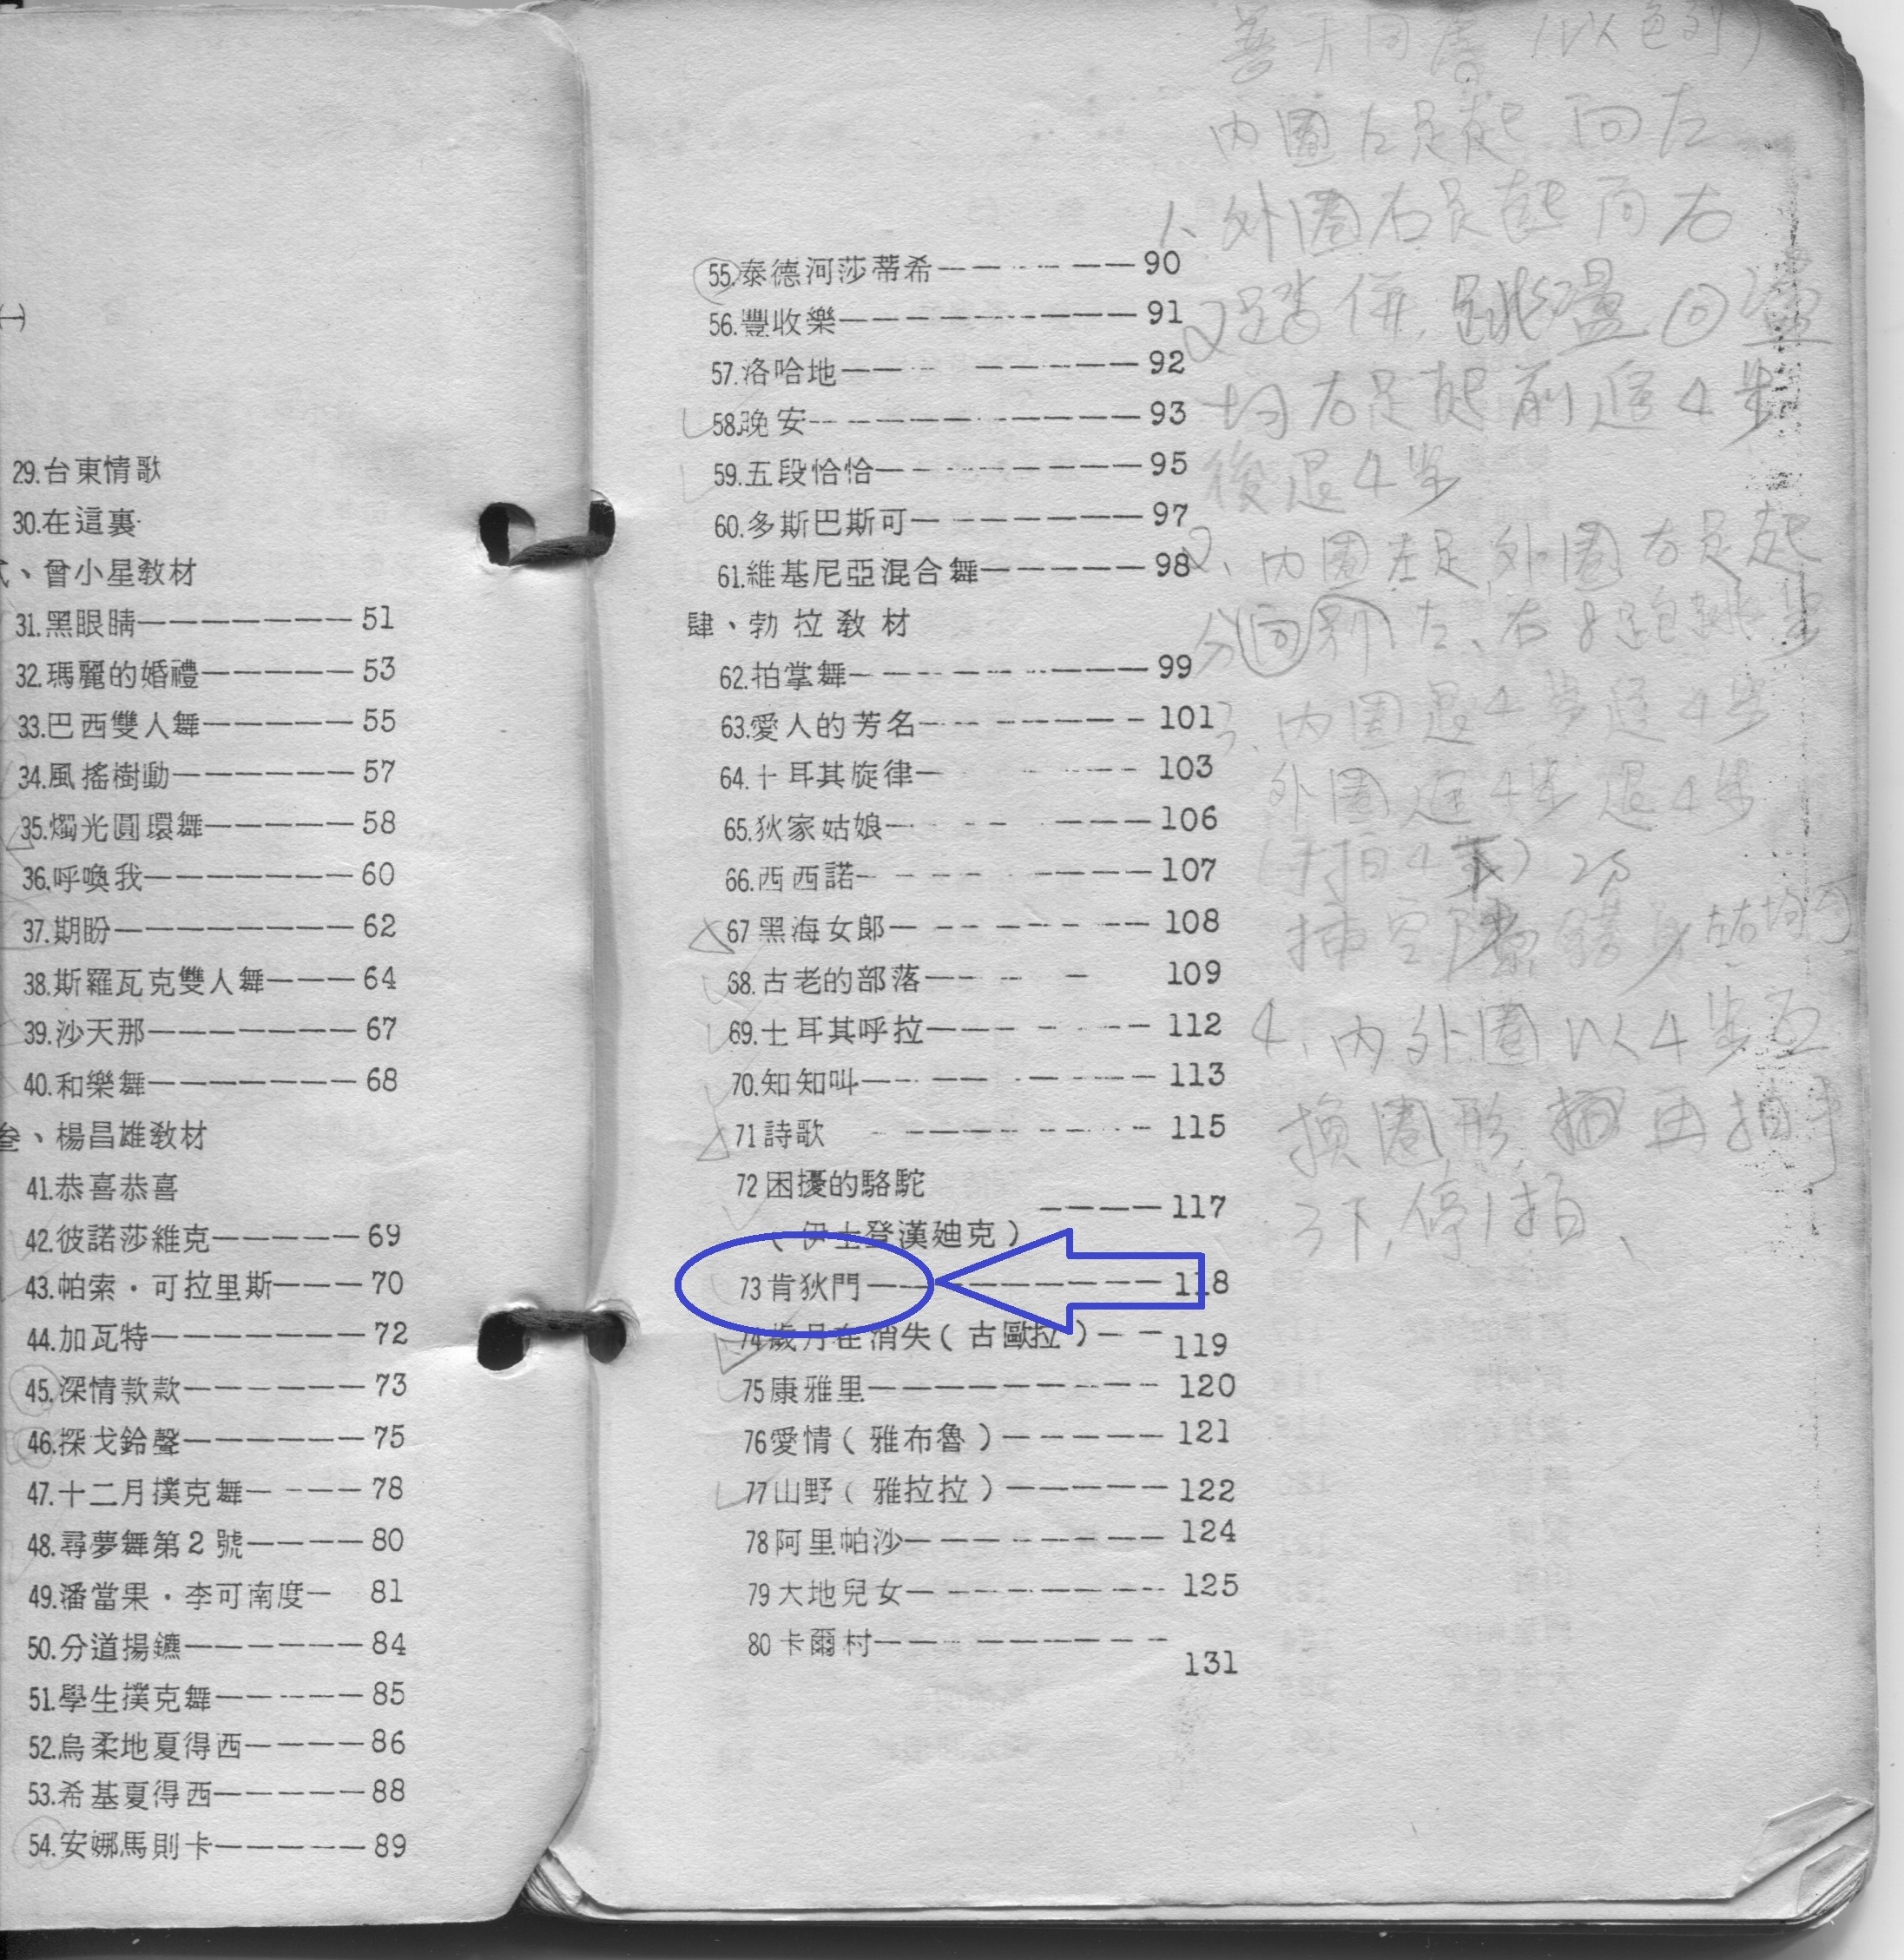 (一)
29.台東情歌
30.在這裏
、曾小星教材
31.黑眼睛————————51
32.瑪麗的婚禮—————53
33.巴西雙人舞—————55
34.風搖樹動——————57
35.燭光圓環舞—————58
36.呼喚我———————60
37.期盼————————62
38.斯羅瓦克雙人舞———64
39.沙天那———————67
40.和樂舞———————68
叁、楊昌雄教材
41.恭喜恭喜
42.彼諾莎維克————69
43.帕索・可拉里斯———70
44.加瓦特———————72
45.深情款款——————73
46.探戈鈴聲——————75
47.十二月撲克舞————78
48.尋夢舞第2號————80
49.潘當果・李可南度— 81
50.分道揚鑣——————84
51.學生撲克舞—————85
52.烏柔地夏得西————86
53.希基夏得西—————88
54.安娜馬則卡—————89
55.泰德河莎蒂希——————90
56.豐收樂——————————91
57.洛哈地—————————92
58.晚安——————————93
59.五段恰恰————————95
60.多斯巴斯可———————97
61.維基尼亞混合舞—————98
肆、勃拉教材
62.拍掌舞—————————99
63.愛人的芳名———————101
64.土耳其旋律— ——103
65.狄家姑娘— — — ———106
66.西西諾— — — ————107
67黑海女郎————————108
68.古老的部落——— — 109
69.土耳其呼拉——————112
70.知知叫————————113
71詩歌 ———————115
72困擾的駱駝
(伊士登漢廸克) ————117
73肯狄門—————————118
74歲月在消失(古歐拉)——119
75康雅里—————————120
76愛情(雅布魯)—————121
77山野(雅拉拉)—————122
78阿里帕沙————————124
79大地兒女————————125
80卡爾村—————————131
(以色列)
內圈左足起向左
1、外圈右足起向右
踏併,跳盪
均右足起前進4步
後退4步
2、內圈左足外圈右足起
左、右8跑跳步
3、內圈退4步進4步
外圈進4步退4步
左右均可
4、內外圈以4步互
換圈形,再拍手
3下,停1拍、